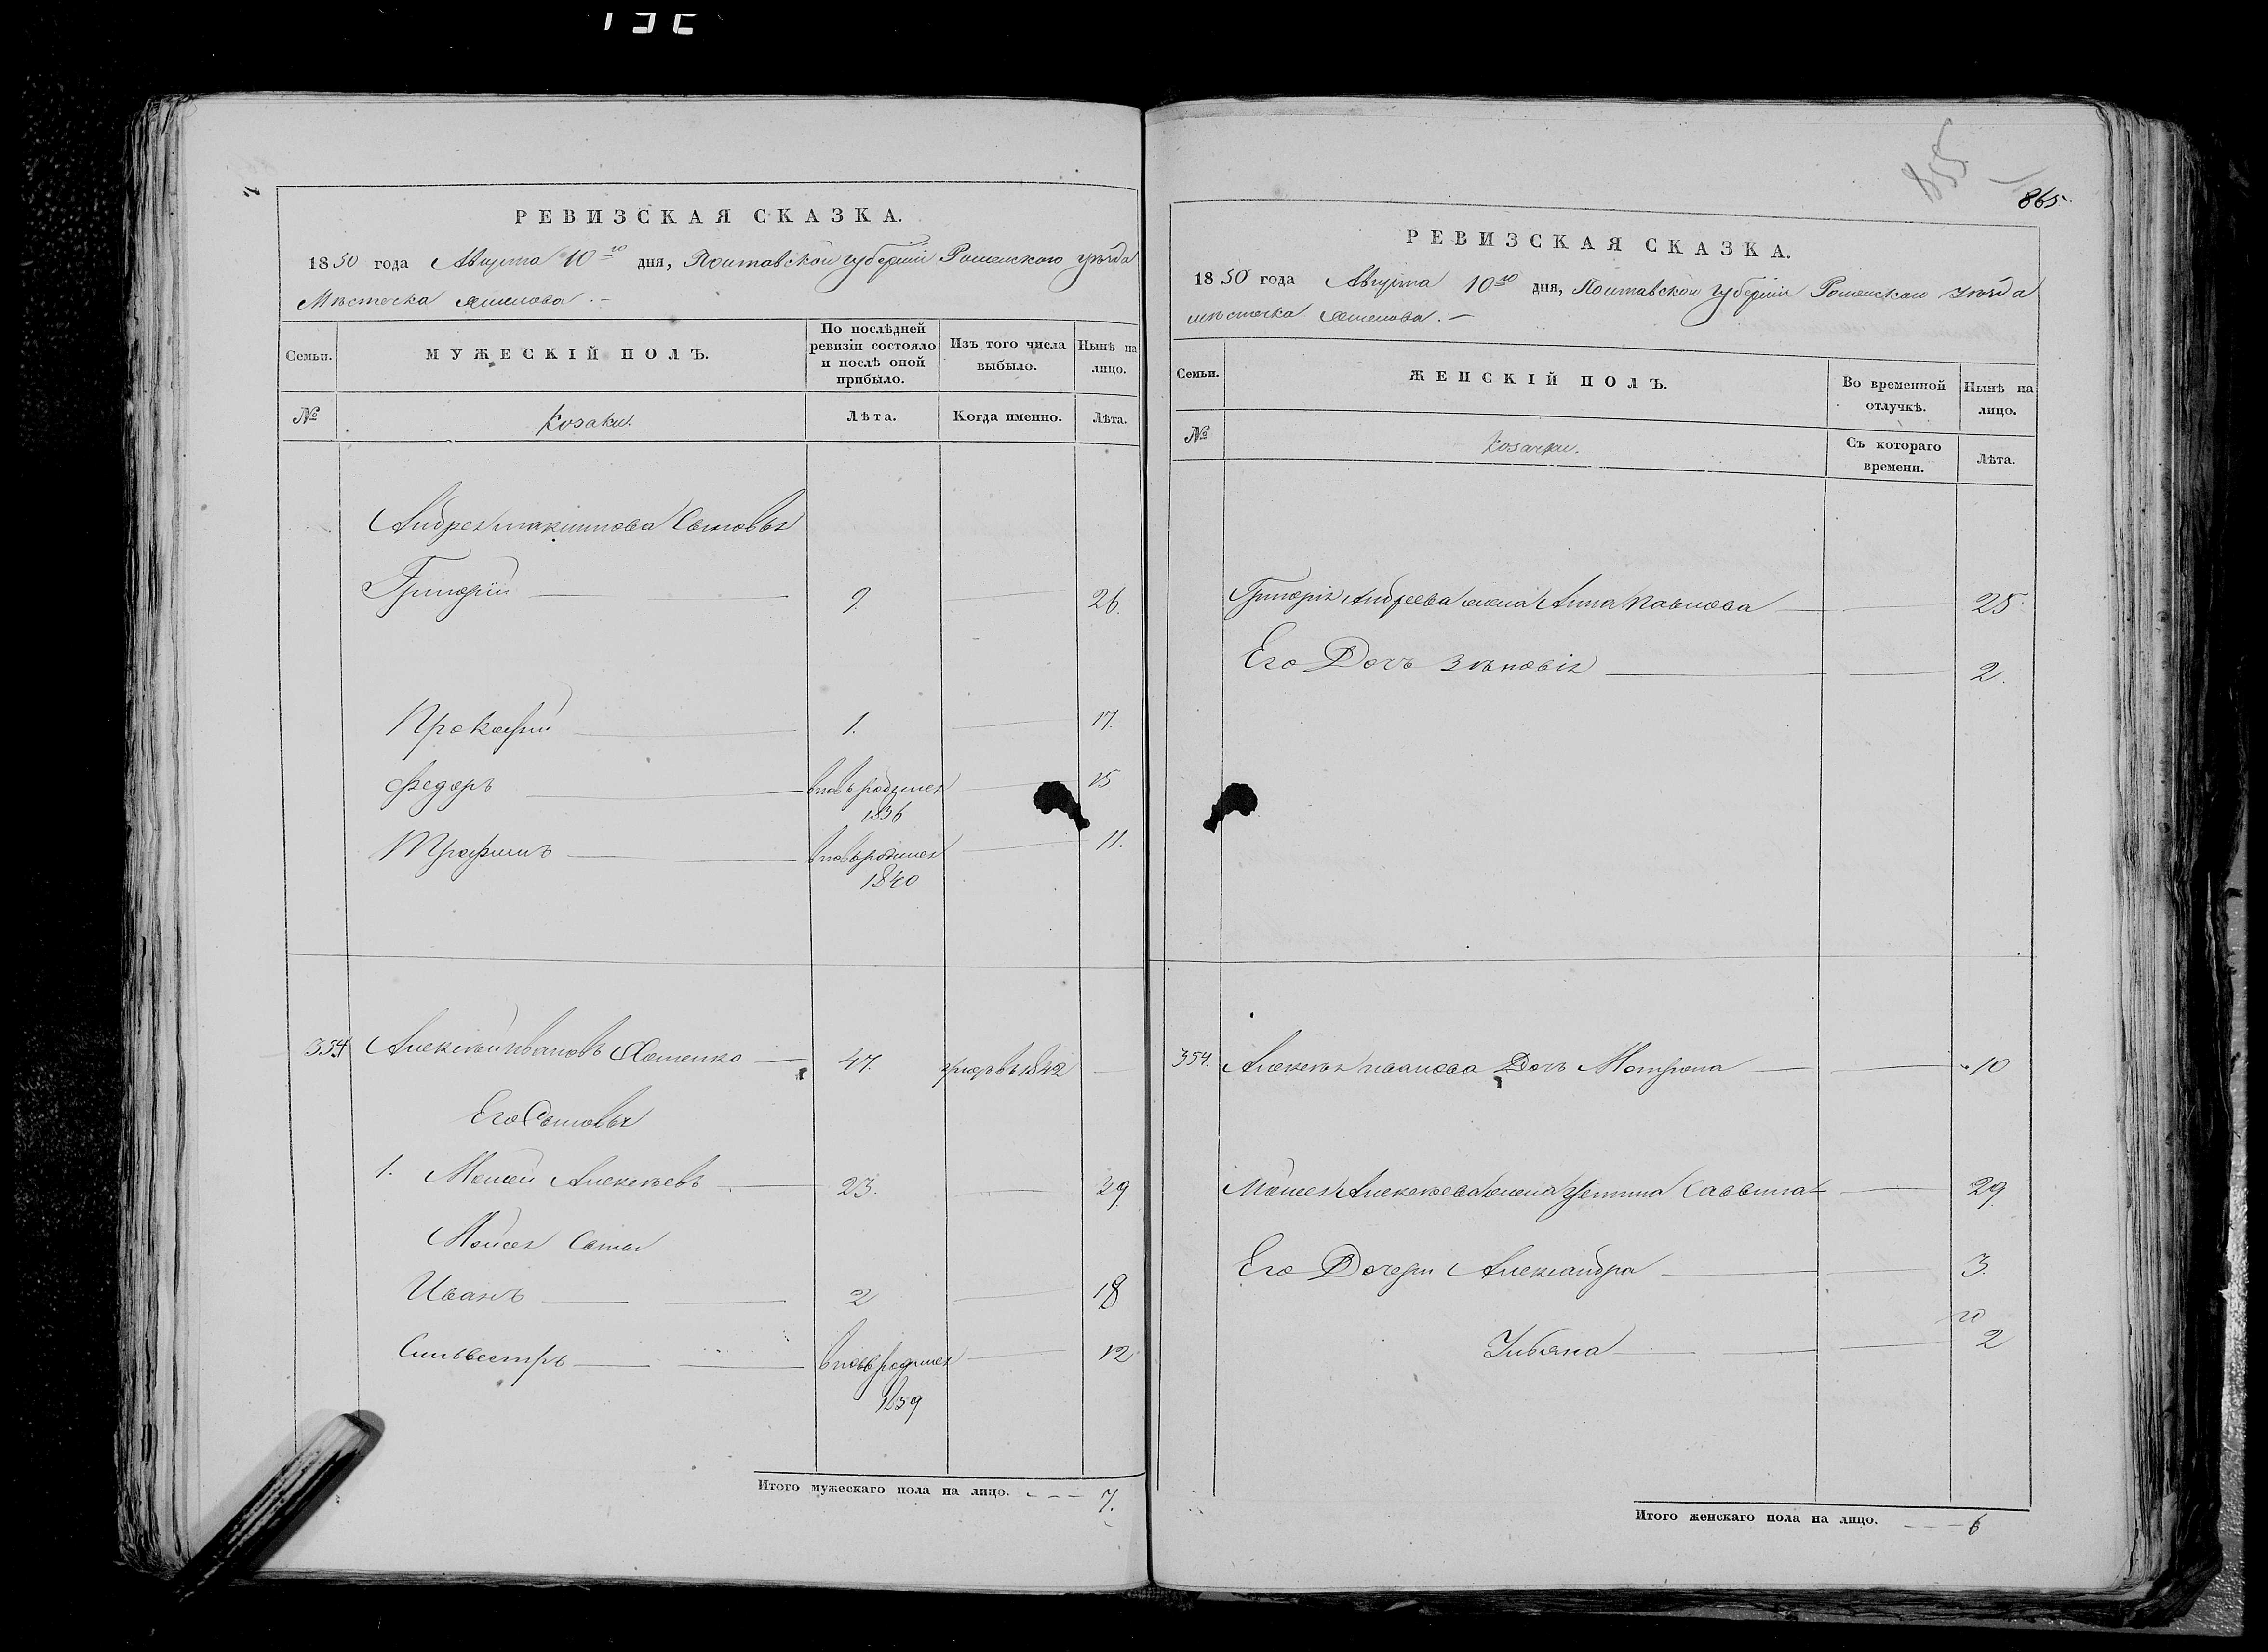 855
865.
РЕВИЗСКАЯ СКАЗКА.
1850 года Августа 10го дня, Полтавской губерніи Роменского уѣзда
Мѣстечка
Семьи. МУЖЕСКІЙ ПОЛЪ. По послѣдней ревизіи состояло и послѣ оной прибыло. Изъ того числа выбыло. Нынѣ на лицо.
№ Козаки. Лѣта. Когда именно. Лѣта.
Андрея Сыновья
Григорій 9. 26.
Прокофій 1. 17.
Федоръ вновь родился 1836 15
Трофимъ вновь родился 1840 11.
354 Алексѣй Ивановъ 47. умеръ въ 1842
Его Сыновья
1. Моисей Алексѣевъ 23. 39
Моисея Сыны
Иванъ 2 18
Сильвестръ вновь родился 1839 12
Итого мужескаго пола на лицо. 7.
РЕВИЗСКАЯ СКАЗКА.
1850 года Августа 10го дня, Полтавской губерніи Роменскаго уѣзда
мѣстечка
Семьи. ЖЕНСКІЙ ПОЛЪ. Во временной отлучкѣ. Нынѣ на лицо.
№ Козачки. Съ котораго времени. Лѣта.
Григорія Андреева жена Анна Павлова 25.
Его Дочь Зѣновія 2.
354. Алексѣя Иванова Дочь Мотрона 10
Моисея Алексѣева жена Устина Саввина 29.
Его Дочери Александра 3.
Ульяна 2
Итого женскаго пола на лицо. 6